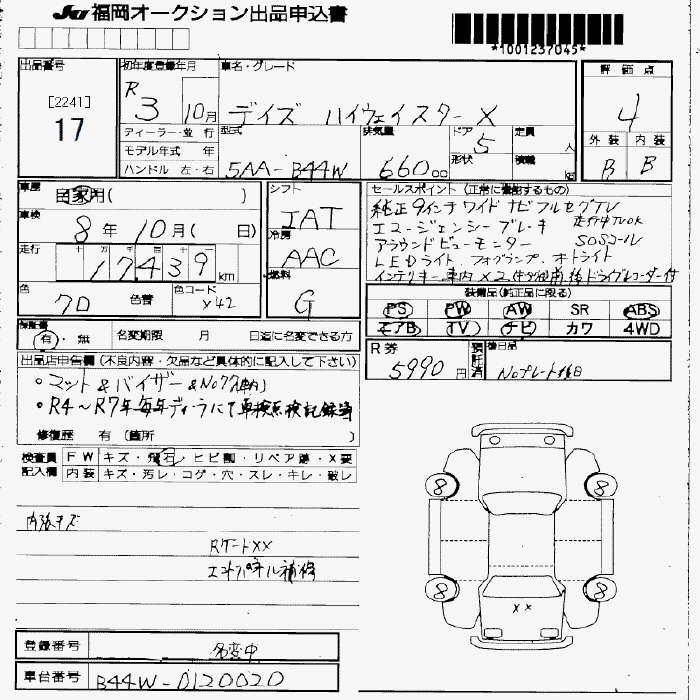 JU 福岡オークション出品申込書
*1001237045*
出品番号 初年度登録年月 車名・グレード 評価点
[2241]
17
R 3 10月 デイズ ハイウェイスター X 4
ディーラー・並行 型式 排気量 ドア 定員 外装 内装
モデル年式 年 5AA-B44W 660 cc 5 人 B B
ハンドル 左・右 形状 積載 kg
車歴 自家用( ) シフト セールスポイント (正常に作動するもの)
車検 8年 10月( 日) IAT 純正9インチワイドナビフルセグTV
エマージェンシーブレーキ 走行中TVOK
冷房 アラウンドビューモニター SOSコール
走行 17439km AAC LEDライト フォグランプ オートライト
インテリキー車内×2 前後ドライブレコーダー付
色 7D 色替 色コード X42 燃料 G
装備品(純正品に限る)
PS PW AW SR ABS
エアB TV ナビ カワ 4WD
保証書 有・無 名変期限 月 日迄に名変できる方
R券 5990円 預託済 後日品 Noプレート後日
出品店申告欄 (不良内容・欠品など具体的に記入して下さい)
・マット&バイザー&Noフレ(車内)
・R4～R7年毎年ディーラにて車検点検記録簿
修復歴 有 (箇所 )
検査員 FW キズ・飛石・ヒビ割・リペア跡・X要
記入欄 内装 キズ・汚レ・コゲ・穴・スレ・キレ・破レ
内張キズ
RゲートXX
エンドパネル補修
8 8
8 8
XX
登録番号 名変中
車台番号 B44W-0120020